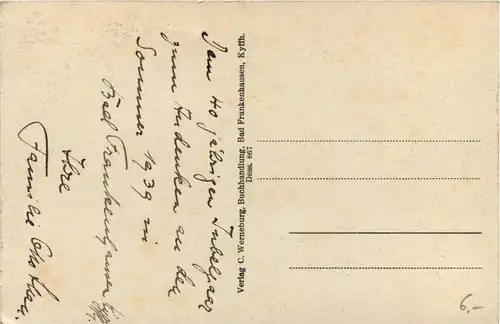 Dem 40 jährigen Jubelpaar
zum Andenken an den
Sommer 1939 in
Bad Frankenhausen Kyffh.
Ihre
Familie Otto
Verlag C. Werneburg, Buchhandlung, Bad Frankenhausen, Kyffh.
Dess. 867
6.-